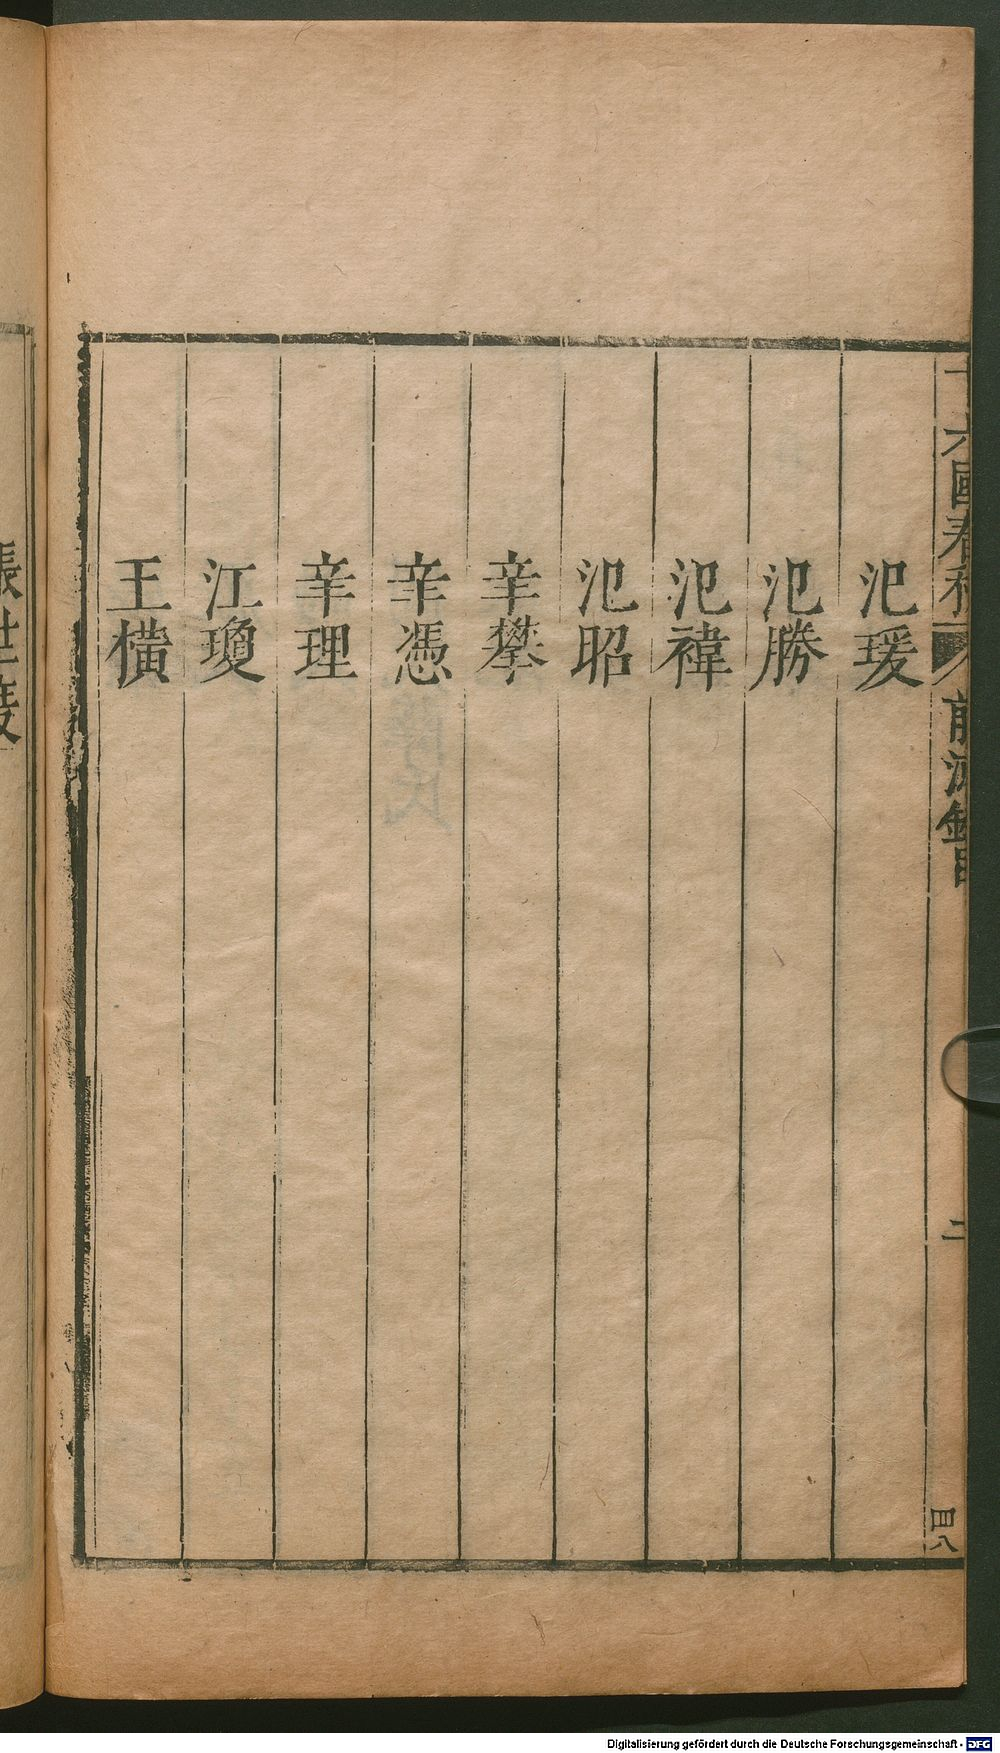 十六國春秋
前涼錄目
二
四八
氾瑗
氾勝
氾禕
氾昭
辛攀
辛憑
辛理
江瓊
王橫
張世
Digitalisierung gefördert durch die Deutsche Forschungsgemeinschaft - DFG